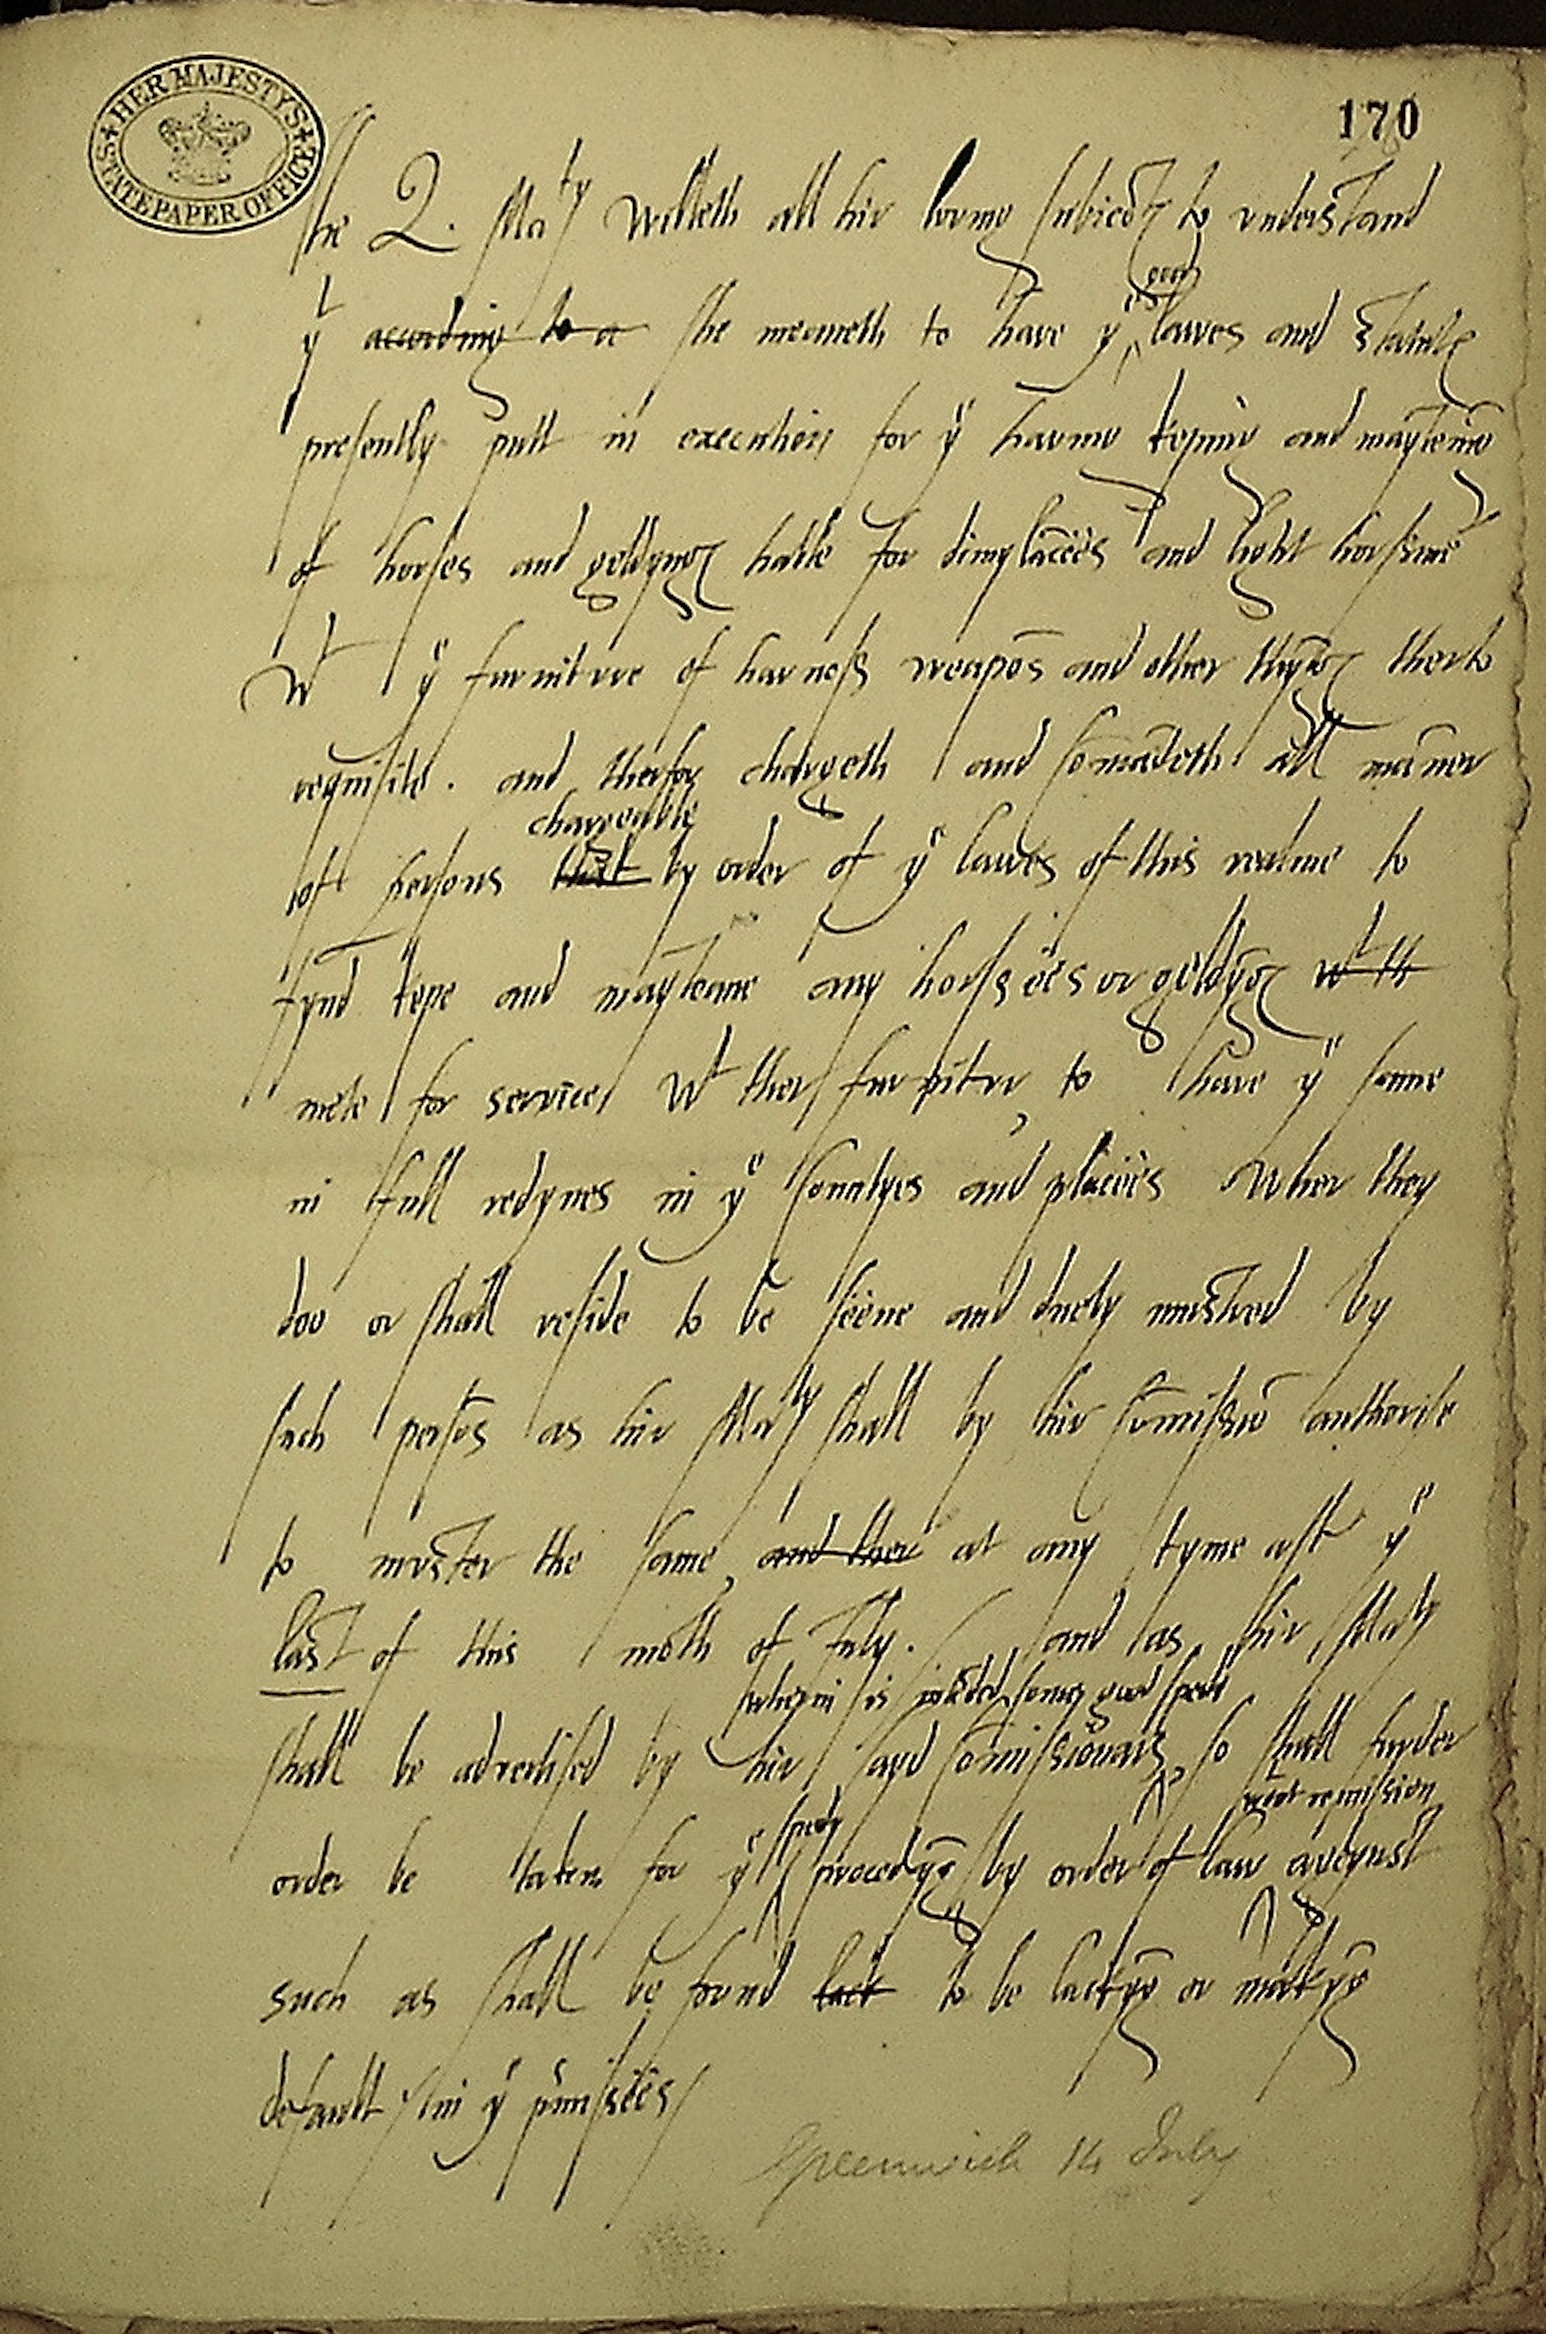 HER MAJESTY'S STATE PAPER OFFICE
170
The Q. Maty willeth all hir loving subiects to understand
yt according to a she meaneth to have ye good lawes and statuts
presently putt in execution for ye having keping and mayteing
of horses and geldyngs hable for dimylācees and light horsmē
wt ye furnitvre of harness weapōs and other thyngs therto
requisite. and therfor chargeth and cōmādeth all māner
of persons that chargeable by order of ye lawes of this realme to
fynd kepe and mayteane any horssees or geldygs wt th
mete for service wt ther furnitur, to have ye same
in full redynes in ye Countyes and placees wher they
doo or shall reside to be seene and duely mustred by
such persōs as hir Maty shall by hir cōmissiō authorise
to muster the same, and ther at any tyme aft ye
last of this mōth of July. and as hir Maty
wherin is intēded some good spede
shall be advertised by hir sayd Cōmissionars, so shall furder
order be taken for ye spedy procedyg by order of law wtout remission ageynst
such as shall be found lack to be lackyg or makyg
default in ye pmissees
Greenwich 14 July